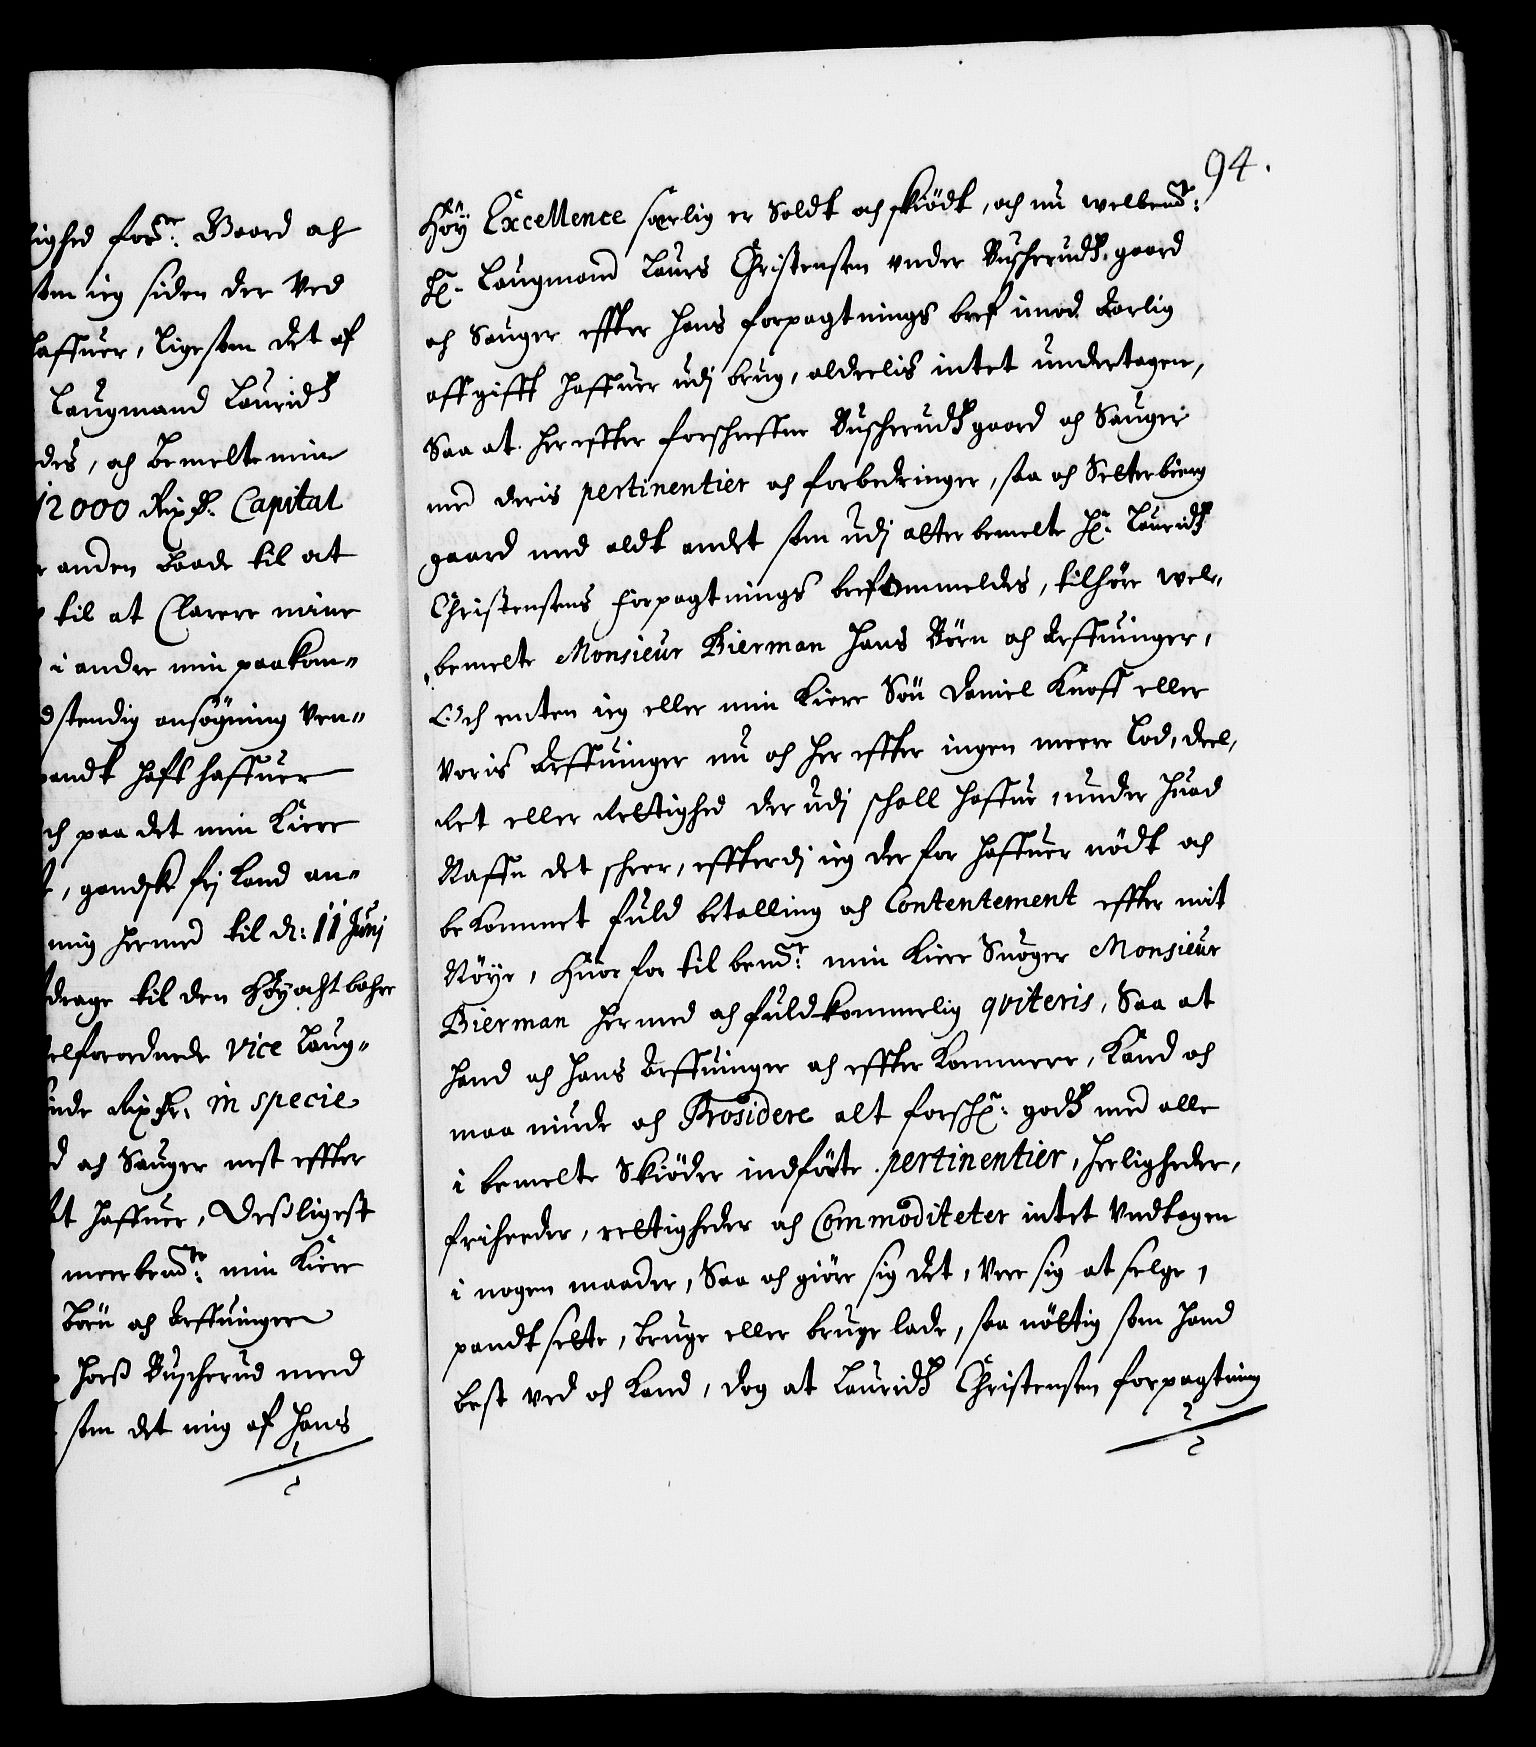 ighed for.ne: Gaard och
som ieg siden der Ved
haffuer, ligesom det af
Laugmand Lauridtz
des, och bemelte min
12000 Rixdr. Capital
anden baade til at
til at Clarere mine
i andre min paakom"
dstendig ansøgning Ven"
pandt hafft haffuer
ch paa det min Kiere
, gandske fri Land an"
mig hermed til d: 11 Junj
drage til den Høyachtbahre
elforordnede Vice Laug"
inde Rixdr. in specie
d och Sauger nest effter
haffuer, Desligest
meerbemte: min Kiere
Børn och Arffuinger
horß Buscherud med
som det mig af Hans
94.
Høy Excellence særlig er Soldt och skiødt, och nu welbemte:
Hr. Laugmand Laurs Christensen under Buscheruds gaard
och Sauger effter hans forpagtnings bref imod Aarlig
affgifft haffuer udj brug, alderlis intet undertagen,
Saa at her effter forschreffne Buscherudtzgaard och Sauger
med deris pertinentier och forbedringer, saa och Selterbierg
gaard med aldt andet som udj alter bemelte Hr. Lauridtz
Christensens forpagtnings bref ommeldes, tilhøre wel"
bemelte Monsieur Bierman hans Børn och Arffuinger,
Och enten ieg eller min kiere Søn Daniel Knoff eller
Voris Arffuinger nu och her effter ingen meere Lod, deel,
Ret eller Rettighed der udj schall haffue, under huad
Naffn det scheer, effterdj ieg der for haffuer nødt och
bekommet fuld betalling och Contentement effter mit
Nøye, huor for til bemte: min Kiere Suoger Monsieur
Bierman hermed och fuldkommelig qviteris, Saa at
hand och hans Arffuinger och effter Kommere, Kand och
maa niude och Prosidere alt forsch: godtz med alle
i bemelte Skiøder indførte pertinentier, herligheder,
friheeder, rettigheder och Commoditeter intet Undtagen
i nogen maader, Saa och giøre sig det, Vere sig at selge,
pandtsette, bruge eller bruge lade, saa nøttig som hand
best ved och Kand, dog at Lauridtz Christensen forpagtning